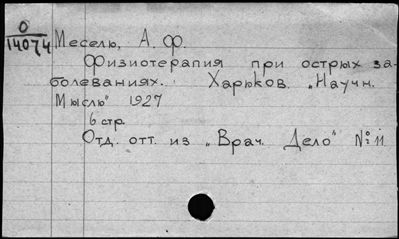 О
14074
Меселю, А. Ф.
Физиотерапия при острых за-
болеваниях. Харьков. „Научн.
Мысль" 1927
6 стр.
Отд. отт. из „Врач. Дело" № 11